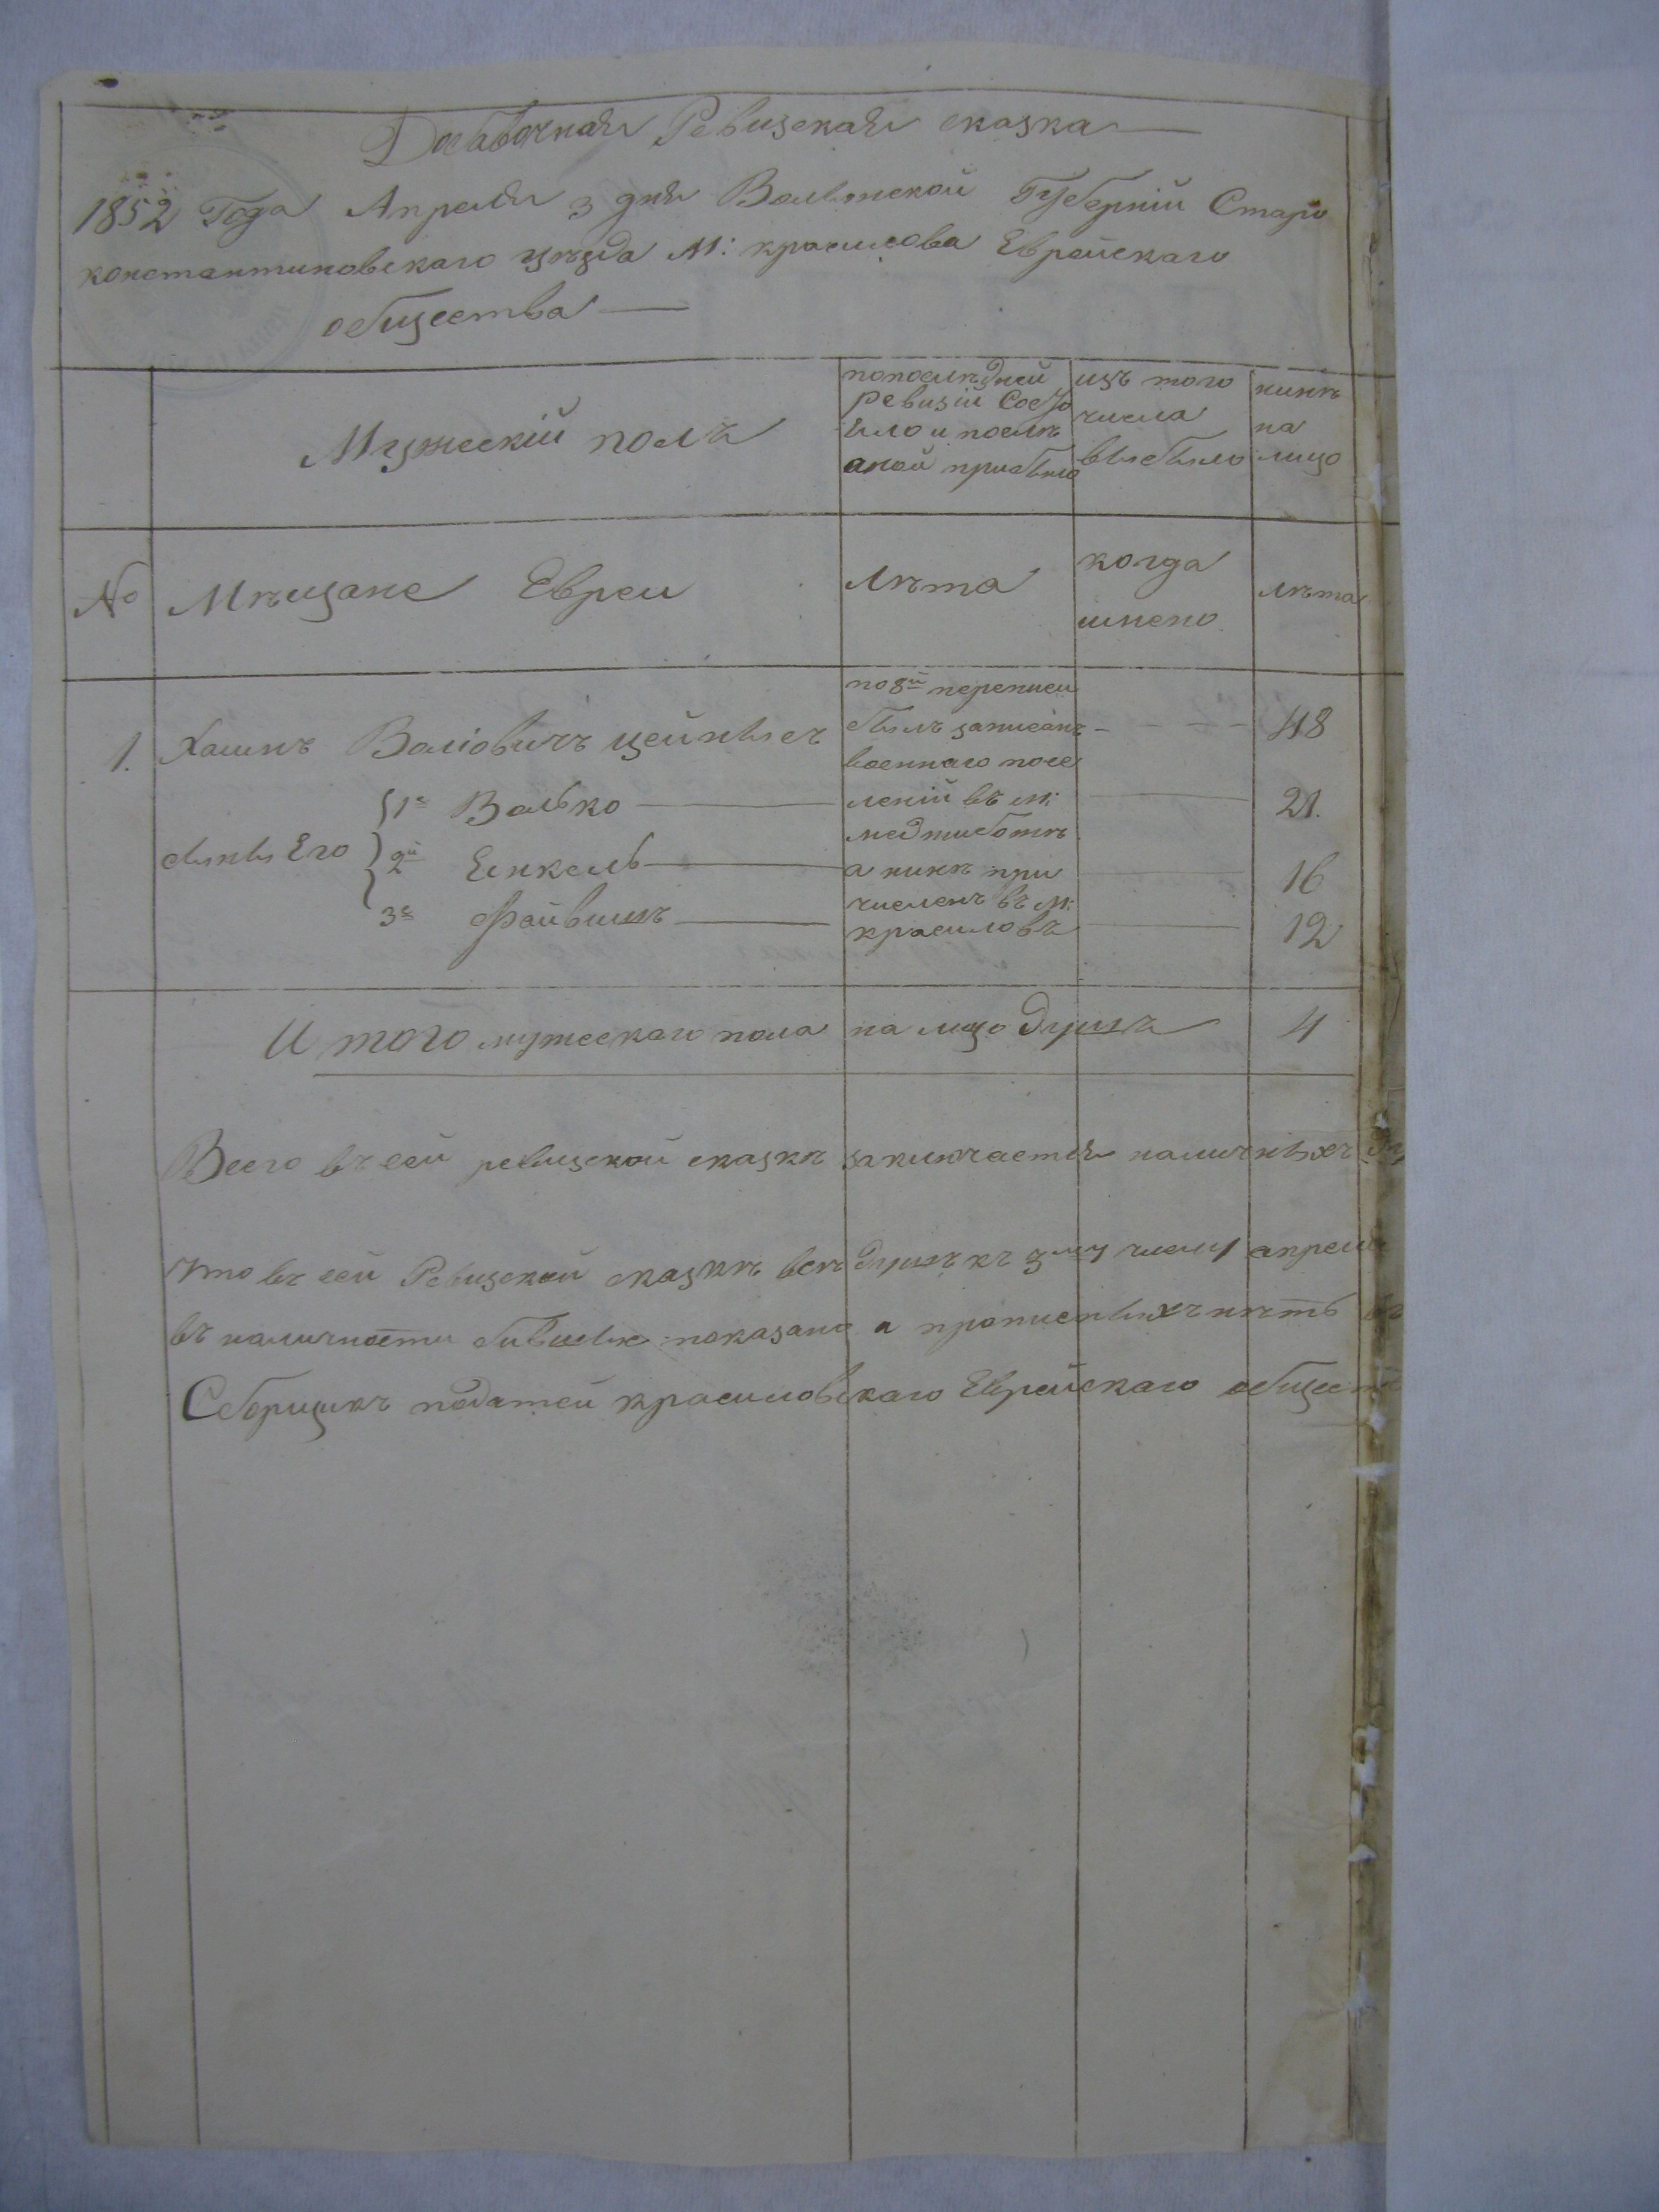 Добавочная Ревизская сказка
1852 Года Апреля 3 дня Волынской Губернiи Старо
константиновскаго уезда М: красилова Еврейскаго
общества
Мужескiй полъ
попоследней
Ревизiи Состо
яло и после
оной прибыло
изъ того
числа
выбыло
ныне
на
лицо
№
Мѣщане Евреи
Лѣта
когда
имено
лѣта
1.
Хаимъ Волiовичъ
48
по 8й переписи
былъ записанъ
военнаго посе
ленiй въ м:
меджибоже
а нынѣ при
численъ въ м:
красиловъ
сыны Его
1е Волько
21.
2й Енкель
16
3е Файвишъ
12
Итого мужескаго пола на лицо Душъ
4
Всего въ сей ревизской сказкѣ заключается наличныхъ
Что въ сей Ревизской сказкѣ всѣ Душъ къ 3му числу апреля
въ наличности бывшие показано а прописныхъ нѣтъ въ
Сборщикъ податей красиловскаго Еврейскаго общества